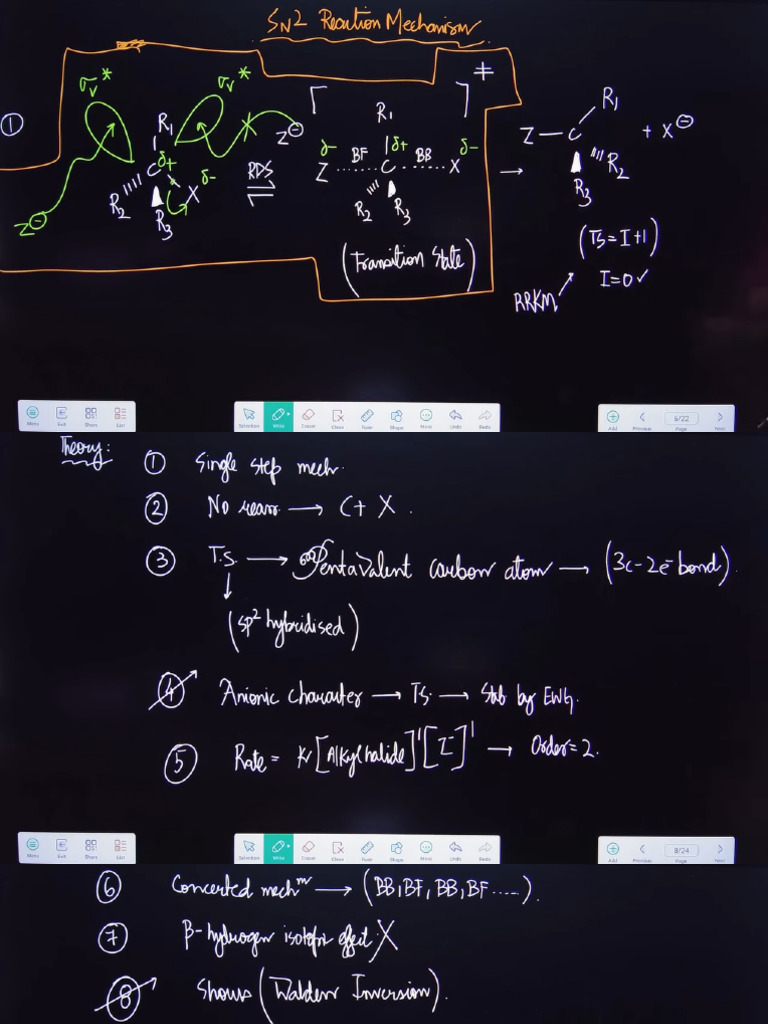 SN2 Reaction Mechanism
①
σv*
σv*
R1
C δ+
X δ-
R2
R3
Z⊖
Z⊖
RDS
⇌
[ ]‡
R1
δ- δ+ δ-
Z ...... C ...... X
BF BB
R2 R3
(Transition State)
→
R1
Z — C + X⊖
R2
R3
(TS = I+1)
RRKM
I=0 ✓
Menu Exit Share List
Selection Write Eraser Close Fuser Shape More Undo Redo
Add Previous Page Next
6/22
Theory:
① Single step mech.
② No rearr → C+ X.
③ T.S. → Pentavalent carbon atom → (3c-2e- bond).
↓
(sp2 hybridised)
④ Anionic character → T.S. → Stab by EWG.
⑤ Rate = K[Alkyl halide]1[Z-]1 → Order = 2.
Menu Exit Share List
Selection Write Eraser Close Fuser Shape More Undo Redo
Add Previous Page Next
8/24
⑥ Concerted mechm → (BB, BF, BB, BF .....).
⑦ β-hydrogen isotopic effect: X
⑧ Shows (Walden Inversion).